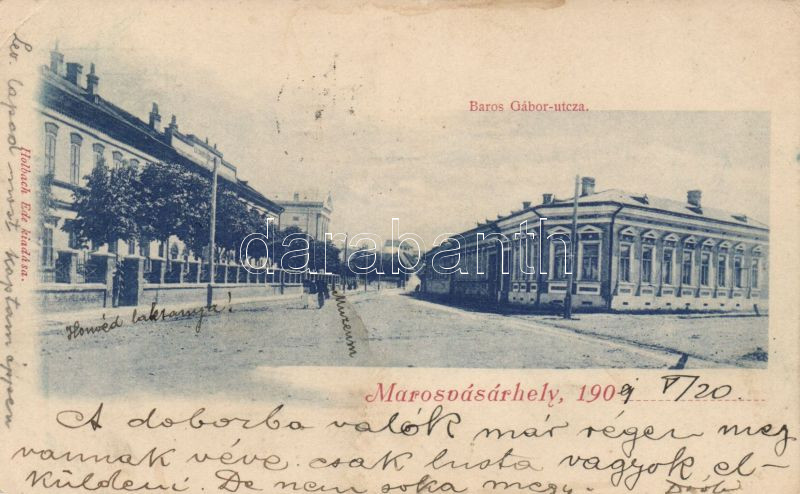 Baros Gábor-utcza.
Holbach Ede kiadása.
Lev. lapod most kaptam éppen
darabanth
Honvéd laktanya!
Muzeum
Marosvásárhely, 1909 V/20.
A doborba valók már régen meg
vannak véve csak lusta vagyok el-
küldeni. De nem soka megy.